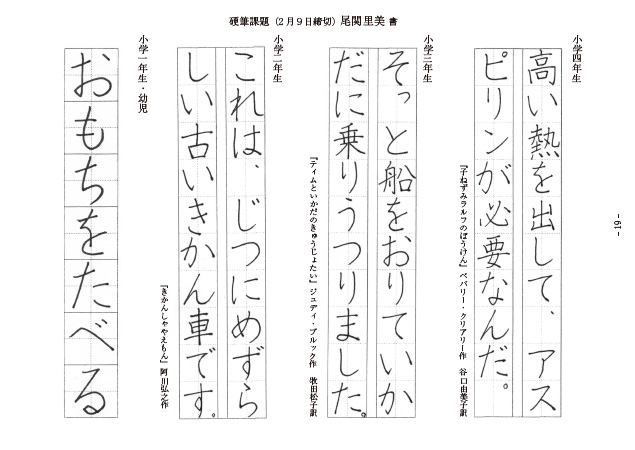 硬筆課題（2月9日締切）尾関里美 書
小学四年生
高い熱を出して、アス
ピリンが必要なんだ。
『子ねずみラルフのぼうけん』ベバリー・クリアリー作 谷口由美子訳
小学三年生
そっと船をおりていか
だに乗りうつりました。
『ティムといかだのきゅうじょたい』ジュディ・ブルック作 牧田松子訳
小学二年生
これは、じつにめずら
しい古いきかん車です。
『きかんしゃやえもん』阿川弘之作
小学一年生・幼児
おもちをたべる
- 19 -